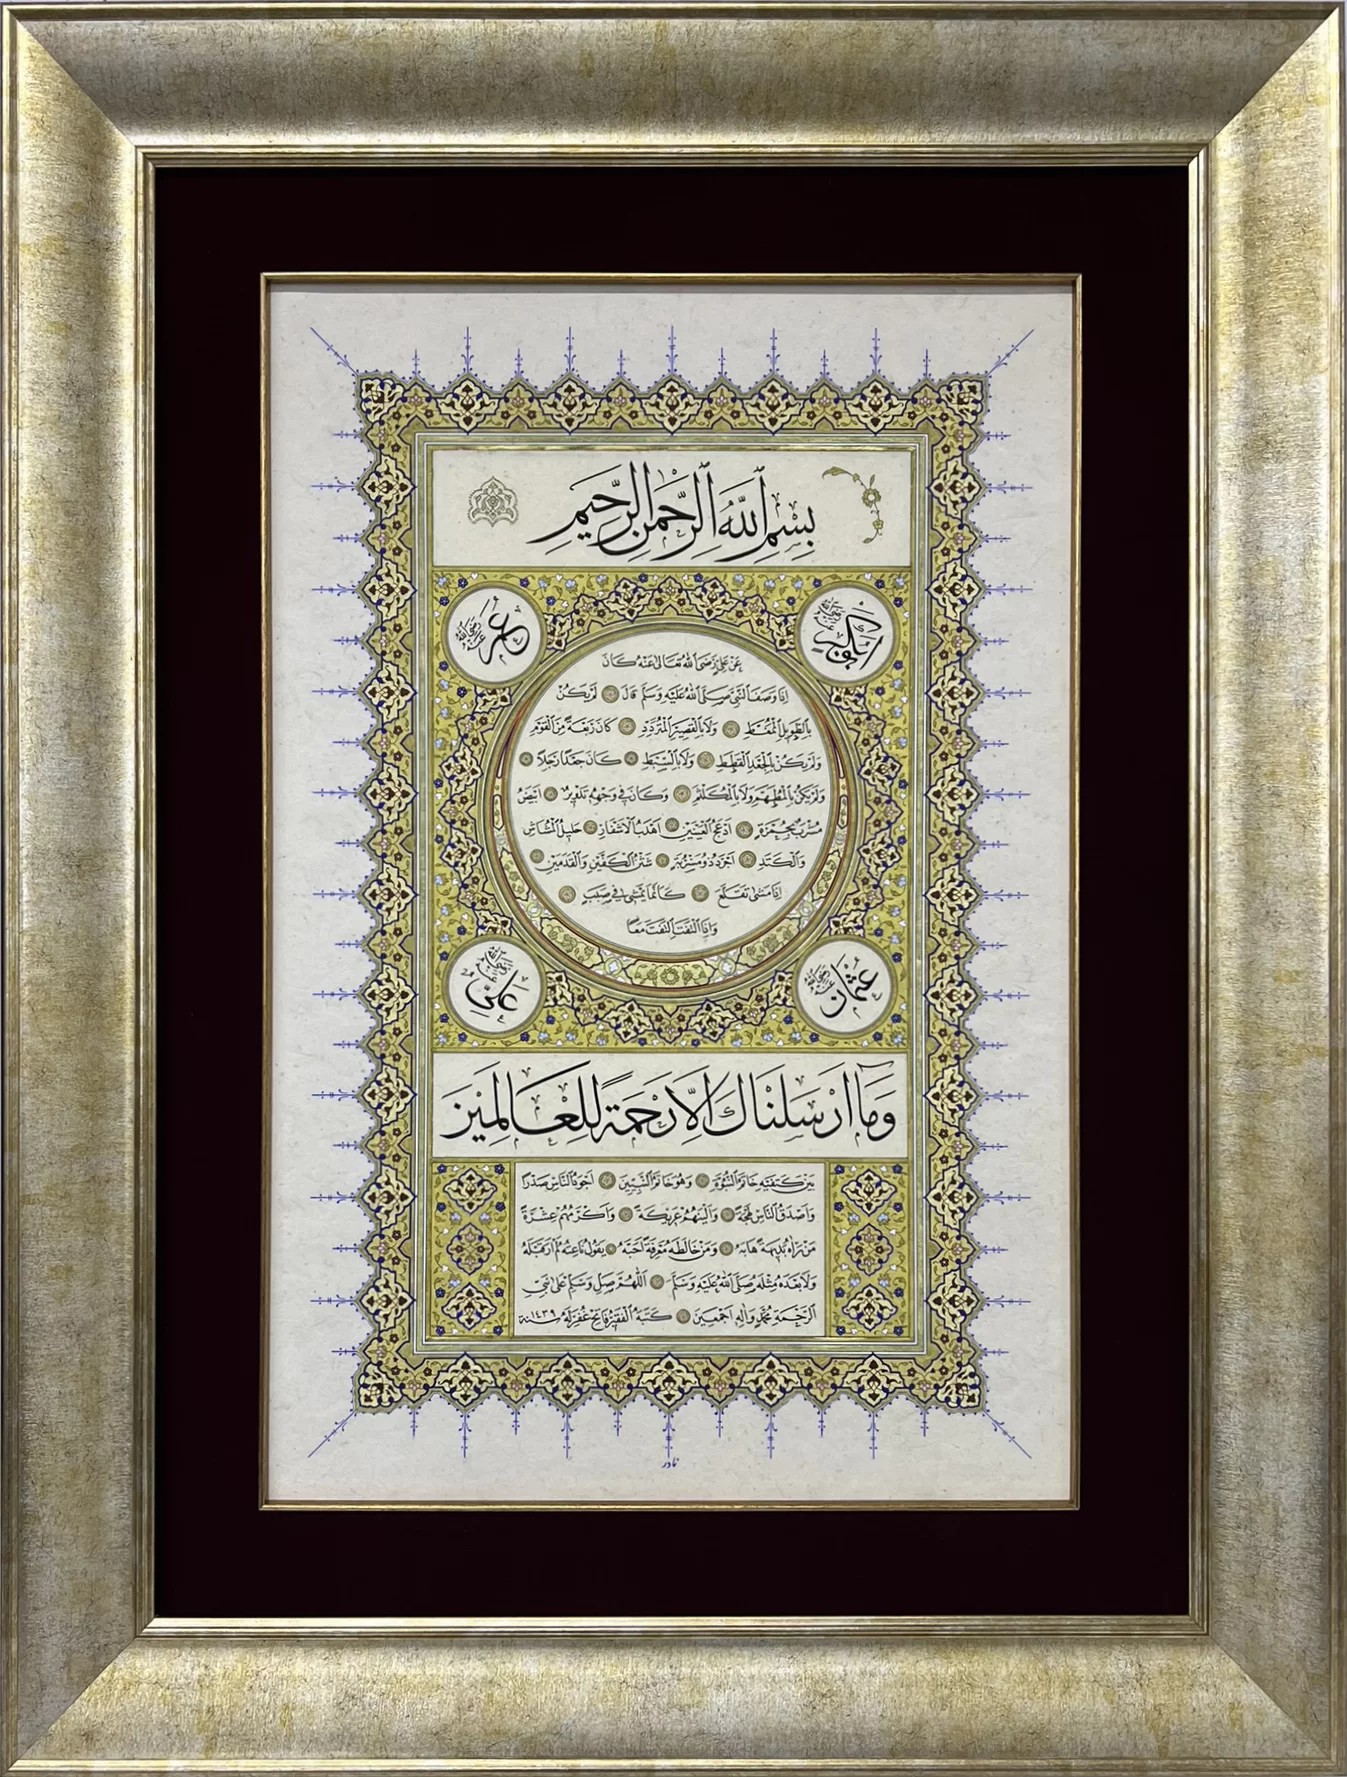 بِسْمِ اللّٰهِ الرَّحْمٰنِ الرَّحِيمِ
ابوبكر رضي الله عنه
عمر رضي الله عنه
عَنْ عَلِيٍّ رَضِيَ اللّٰهُ تَعَالٰى عَنْهُ كَانَ
اِذَا وَصَفَ النَّبِيَّ صَلَّى اللّٰهُ عَلَيْهِ وَسَلَّمَ قَالَ لَمْ يَكُنْ
بِالطَّوِيلِ الْمُمَّغِطِ وَلَا بِالْقَصِيرِ الْمُتَرَدِّدِ كَانَ رَبْعَةً مِنَ الْقَوْمِ
وَلَمْ يَكُنْ بِالْجَعْدِ الْقَطَطِ وَلَا بِالسَّبِطِ كَانَ جَعْدًا رَجِلًا
وَلَمْ يَكُنْ بِالْمُطَهَّمِ وَلَا بِالْمُكَلْثَمِ وَكَانَ فِي وَجْهِهِ تَدْوِيرٌ اَبْيَضُ
مُشْرَبٌ بِحُمْرَةٍ اَدْعَجُ الْعَيْنَيْنِ اَهْدَبُ الْاَشْفَارِ جَلِيلُ الْمُشَاشِ
وَالْكَتَدِ اَجْرَدُ ذُو مَسْرُبَةٍ شَثْنُ الْكَفَّيْنِ وَالْقَدَمَيْنِ
اِذَا مَشٰى تَقَلَّعَ كَاَنَّمَا يَمْشِي فِي صَبَبٍ
وَاِذَا الْتَفَتَ الْتَفَتَ مَعًا
عثمان رضي الله عنه
علي رضي الله عنه
وَمَا اَرْسَلْنَاكَ اِلَّا رَحْمَةً لِلْعَالَمِينَ
بَيْنَ كَتِفَيْهِ خَاتَمُ النُّبُوَّةِ وَهُوَ خَاتَمُ النَّبِيِّينَ اَجْوَدُ النَّاسِ صَدْرًا
وَاَصْدَقُ النَّاسِ لَهْجَةً وَاَلْيَنُهُمْ عَرِيكَةً وَاَكْرَمُهُمْ عِشْرَةً
مَنْ رَاٰهُ بَدِيهَةً هَابَهُ وَمَنْ خَالَطَهُ مَعْرِفَةً اَحَبَّهُ يَقُولُ نَاعِتُهُ لَمْ اَرَ قَبْلَهُ
وَلَا بَعْدَهُ مِثْلَهُ صَلَّى اللّٰهُ عَلَيْهِ وَسَلَّمَ اَللّٰهُمَّ صَلِّ وَسَلِّمْ عَلٰى نَبِيِّ
الرَّحْمَةِ مُحَمَّدٍ وَاٰلِهِ اَجْمَعِينَ كَتَبَهُ الْفَقِيرُ فَاتِحْ غُفِرَ لَهُ سنة ١٤٣٩
نادر